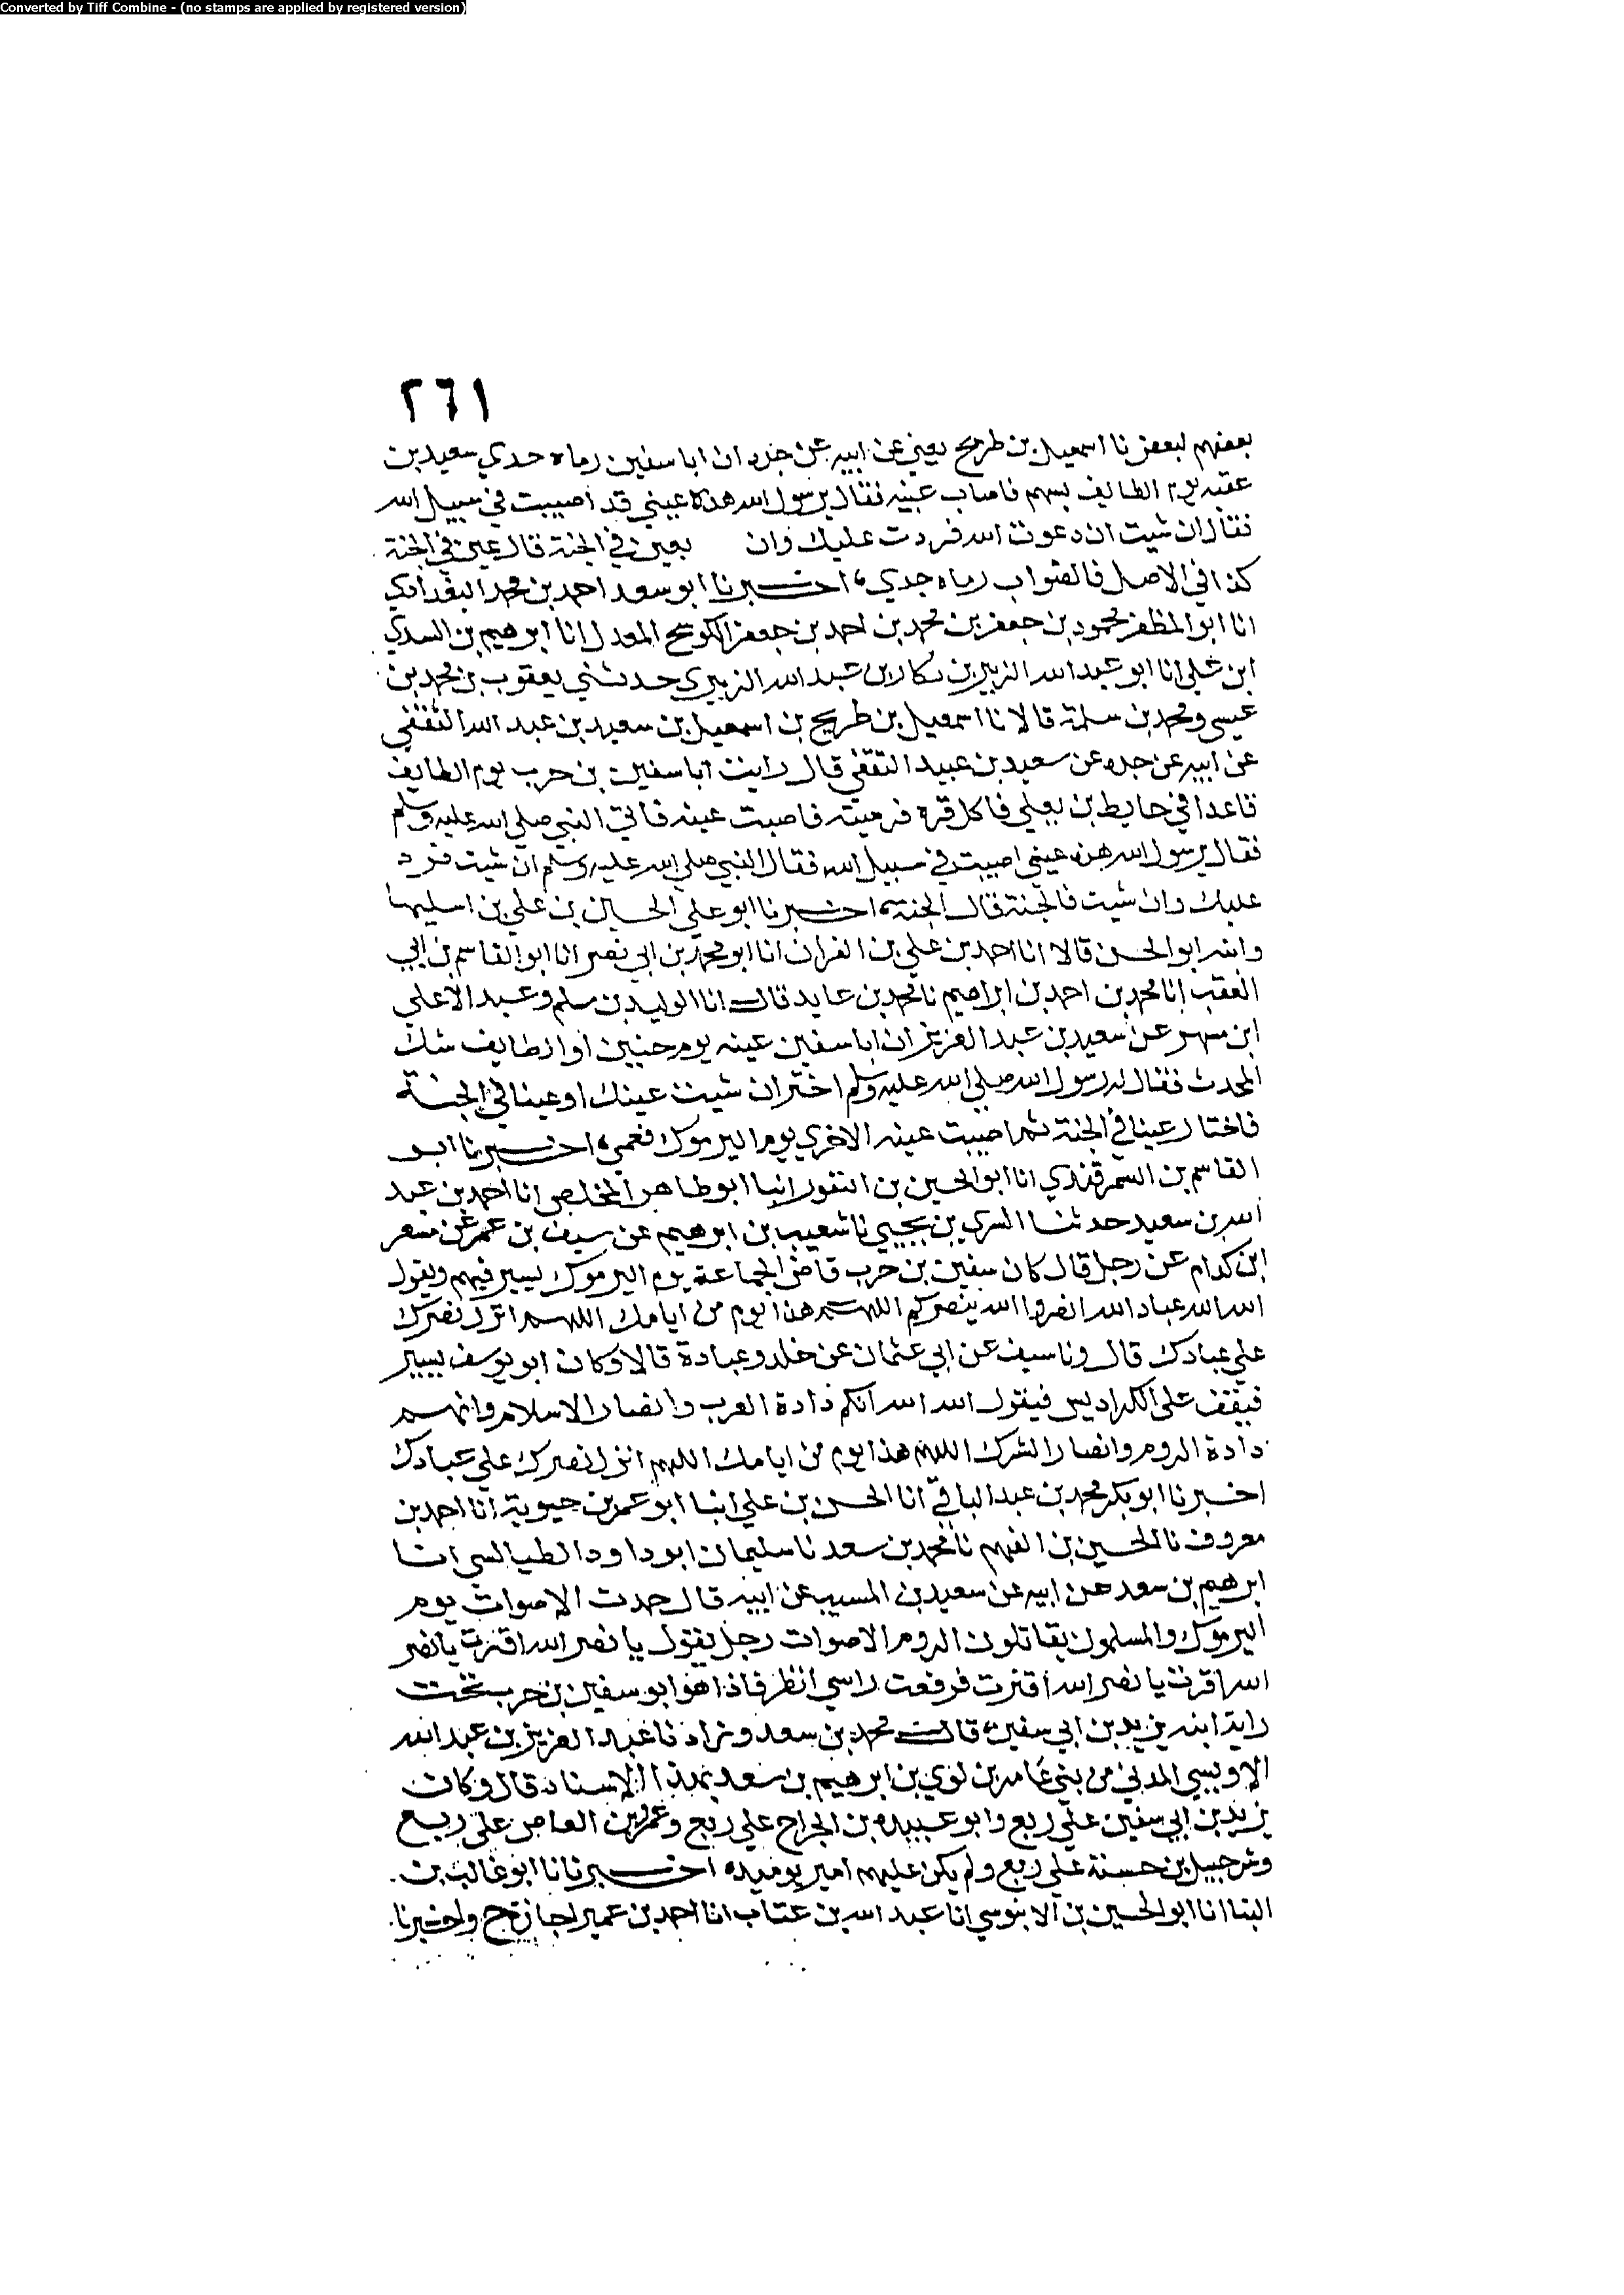 Converted by Tiff Combine - (no stamps are applied by registered version)
٢٦١
بعضهم لبعض نا اسمعيل بن طريح يعني عن ابيه عن جده ان ابا سفين رماه حدي سعيد بن
عقبه يوم الطايف بسهم فاصاب عينه فقال يرسول الله هذه عيني قد اصيبت في سبيل الله
فقال ان شيت ان دعوت الله فردت عليك وان بعين في الجنة قال عين في الجنة
كذا في الاصل فالصواب رماه جدي، اخبرنا ابو سعد احمد بن محمد البغدادي
انا ابو المظفر محمود بن جعفر بن محمد بن احمد بن جعفر الكوسج المعدل انا ابرهيم بن السدي
ابن علي انا ابو عبد الله الزبير بن بكار بن عبد الله الزبيري حدثني يعقوب بن محمد بن
عيسى ومحمد بن سلمة قالا نا اسمعيل بن طريح بن اسمعيل بن سعيد بن عبد الله الثقفي
عن ابيه عن جده عن سعيد بن عبيد الثقفي قال رايت ابا سفين بن حرب يوم الطايف
قاعدا في حايط بن يعلي فاكل قره فرميته فاصبت عينه فاتى النبي صلى الله عليه وسلم
فقال يرسول الله هذه عيني اصيبت في سبيل الله فقال النبي صلى الله عليه وسلم ان شيت فرد
عليك وان شيت فالجنة قال الجنة، اخبرنا ابو علي الحسين بن علي بن اسليها
وابنه ابو الحسن قالا انا احمد بن علي بن الفرات انا ابو محمد بن ابي نصر انا ابو القاسم بن ابي
العقب انا محمد بن احمد بن ابراهيم نا محمد بن عايد قال انا الوليد بن مسلم وعبد الاعلي
ابن مسهر عن سعيد بن عبد العزيز ان ابا سفين عينه يوم حنين او الطايف شك
المحدث فقال له رسول الله صلي الله عليه وسلم اختر ان شيت عينك او عينا في الجنة
فاختار عينا في الجنة ثم اصيبت عينه الاخري يوم اليرموك فعمي، اخبرنا ابو
القاسم بن السمرقندي انا ابو الحسين بن النقور انبا ابو طاهر المخلص انا احمد بن عبد
الله بن سعيد حدثنا السري بن يحيي نا شعيب بن ابرهيم عن سيف بن عمر عن مسعر
ابن كدام عن رجل قال كان سفين بن حرب قاض الجماعة يوم اليرموك يسير فيهم ويقول
الله الله عباد الله انصروا الله ينصركم اللهم هذا يوم من ايامك اللهم انزل نصرك
علي عبادك قال ونا سيف عن ابي عثمان عن خلد وعبادة قالا وكان ابو يوسف يسير
فيقف علي الكراديس فيقول الله الله انكم ذادة العرب وانصار الاسلام وانهم
دادة الروم وانصار الشرك اللهم هذا يوم من ايامك اللهم انزل نصرك علي عبادك
اخبرنا ابو بكر محمد بن عبد الباقي انا الحسن بن علي انبا ابو عمر بن حيوية انا احمد بن
معروف نا الحسين بن الفهم نا محمد بن سعد نا سليمان ابو داود الطيالسي انا
ابرهيم بن سعد عن ابيه عن سعيد بن المسيب عن ابيه قال حمدت الاصوات يوم
اليرموك والمسلمون يقاتلون الروم الاصوات رجل يقول يا نصر الله اقترب يا نصر
الله اقرب يا نصر الله اقترب فرفعت راسي انظر فاذا هو ابو سفين بن حرب تحت
راية ابنه يزيد بن ابي سفين، قال محمد بن سعد وزاد نا عبد العزيز بن عبد الله
الاويسي المدني من بني عامر بن لوي بن ابرهيم بن سعد بهذا الاسناد قال وكان
يزيد بن ابي سفين علي ربع وابو عبيده بن الجراح علي ربع وعمرو بن العاص علي ربع
وشرحبيل بن حسنة علي ربع ولم يكن عليهم امير يوميذ، اخبرنا نا ابو غالب بن
البنا انا ابو الحسين بن الابنوسي انا عبد الله بن عتاب انا احمد بن عمير اجازة ح واخبرنا